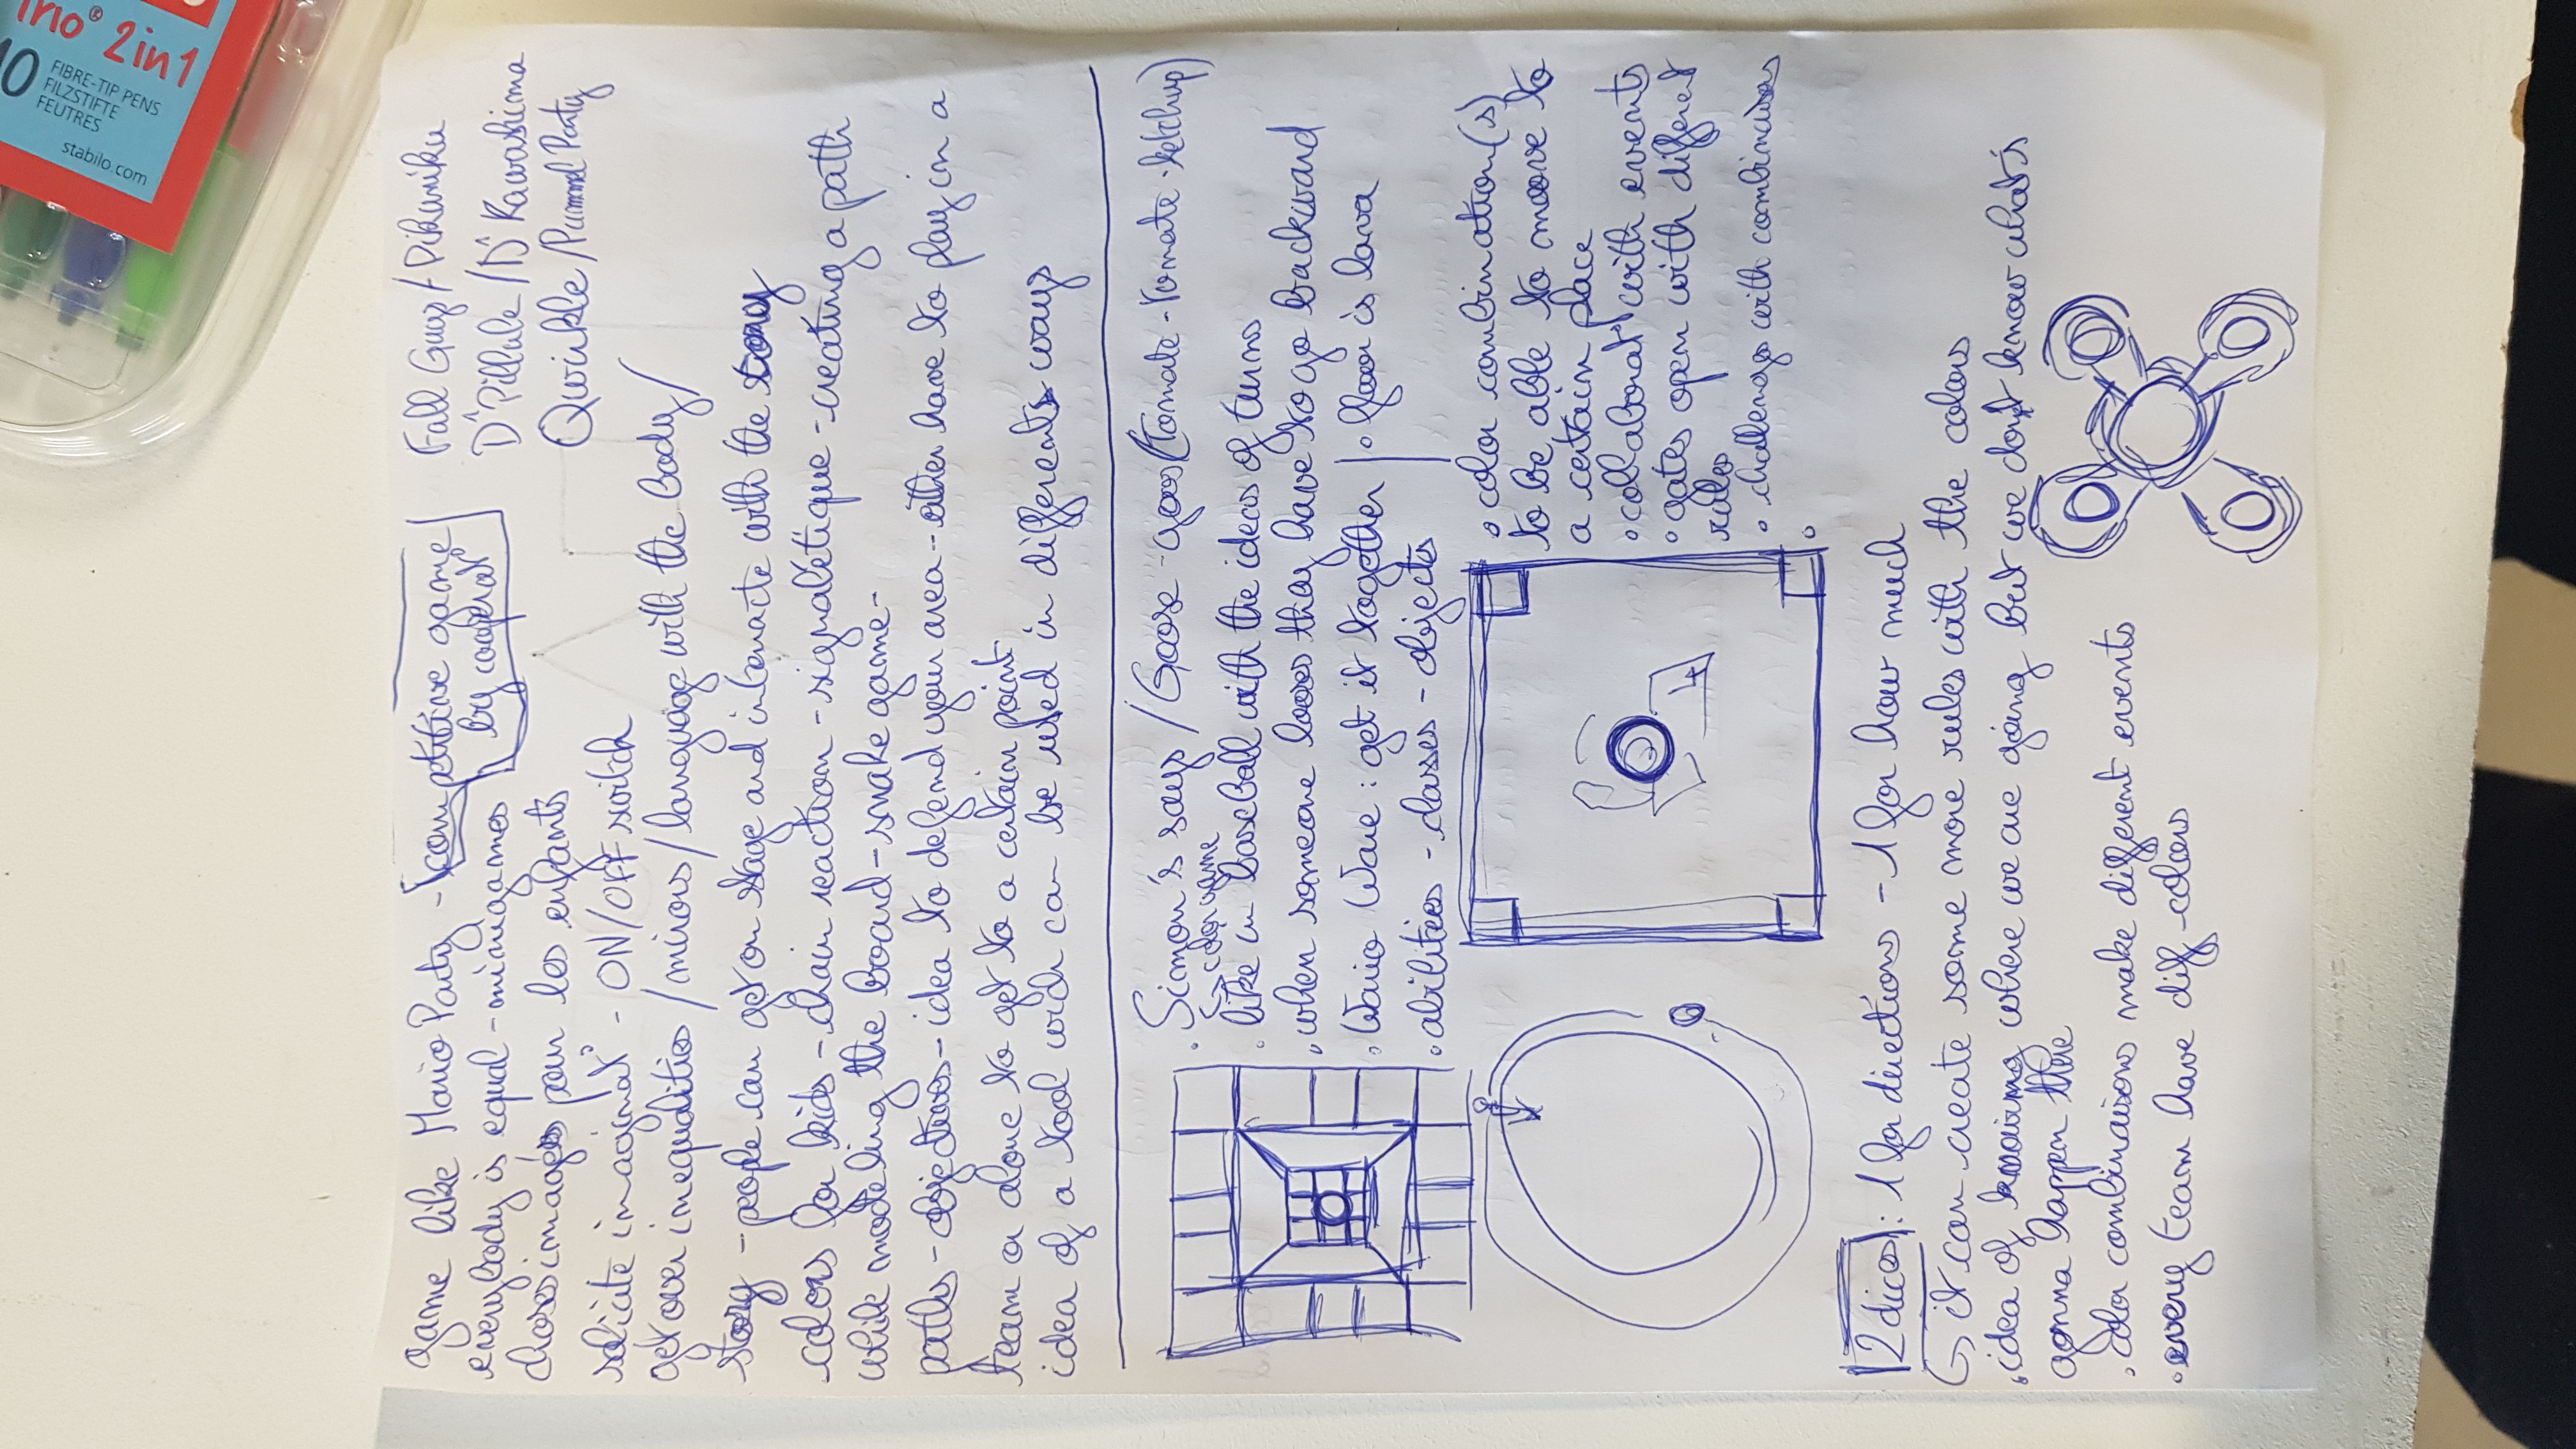 ino® 2in1
10 FIBRE-TIP PENS
FILZSTIFTE
FEUTRES
stabilo.com
game like Mario Party - competitive game
by cooperat°
everybody is equal - minigames
choses imagées pour les enfants
solicite imaginat° - ON/OFF switch
get over inequalities / mirors / language with the body /
story - people can get on stage and interacte with the story
colors for kids - chain reaction - signalétique - creating a path
while modeling the board - snake game -
paths - objectives - idea to defend your area - either have to play in a
team or alone to get to a certain point
idea of a tool wich can be used in differents ways
Fall Guys / Pikuniku
Dr Pillule / Dr Kawashima
Qwirkle / Pummel Party
. Simon's says / Goose - goos (tomate - tomate - ketchup)
↳ color game
. like in baseball with the ideas of turns
. when someone looses they have to go backward
. Wario Ware : get it together | . floor is lava
. abilities - classes - objects
. color combination(s)
to be able to moove to
a certain place
. collaborat° with events
. gates open with different
rules
. challenges with combinaisons
2 dices : 1 for directions - 1 for how much
↳ it can create some more rules with the colors
. idea of knowing where we are going but we don't know what's
gonna happen there
. color combinaisons make different events
. every team have diff colors